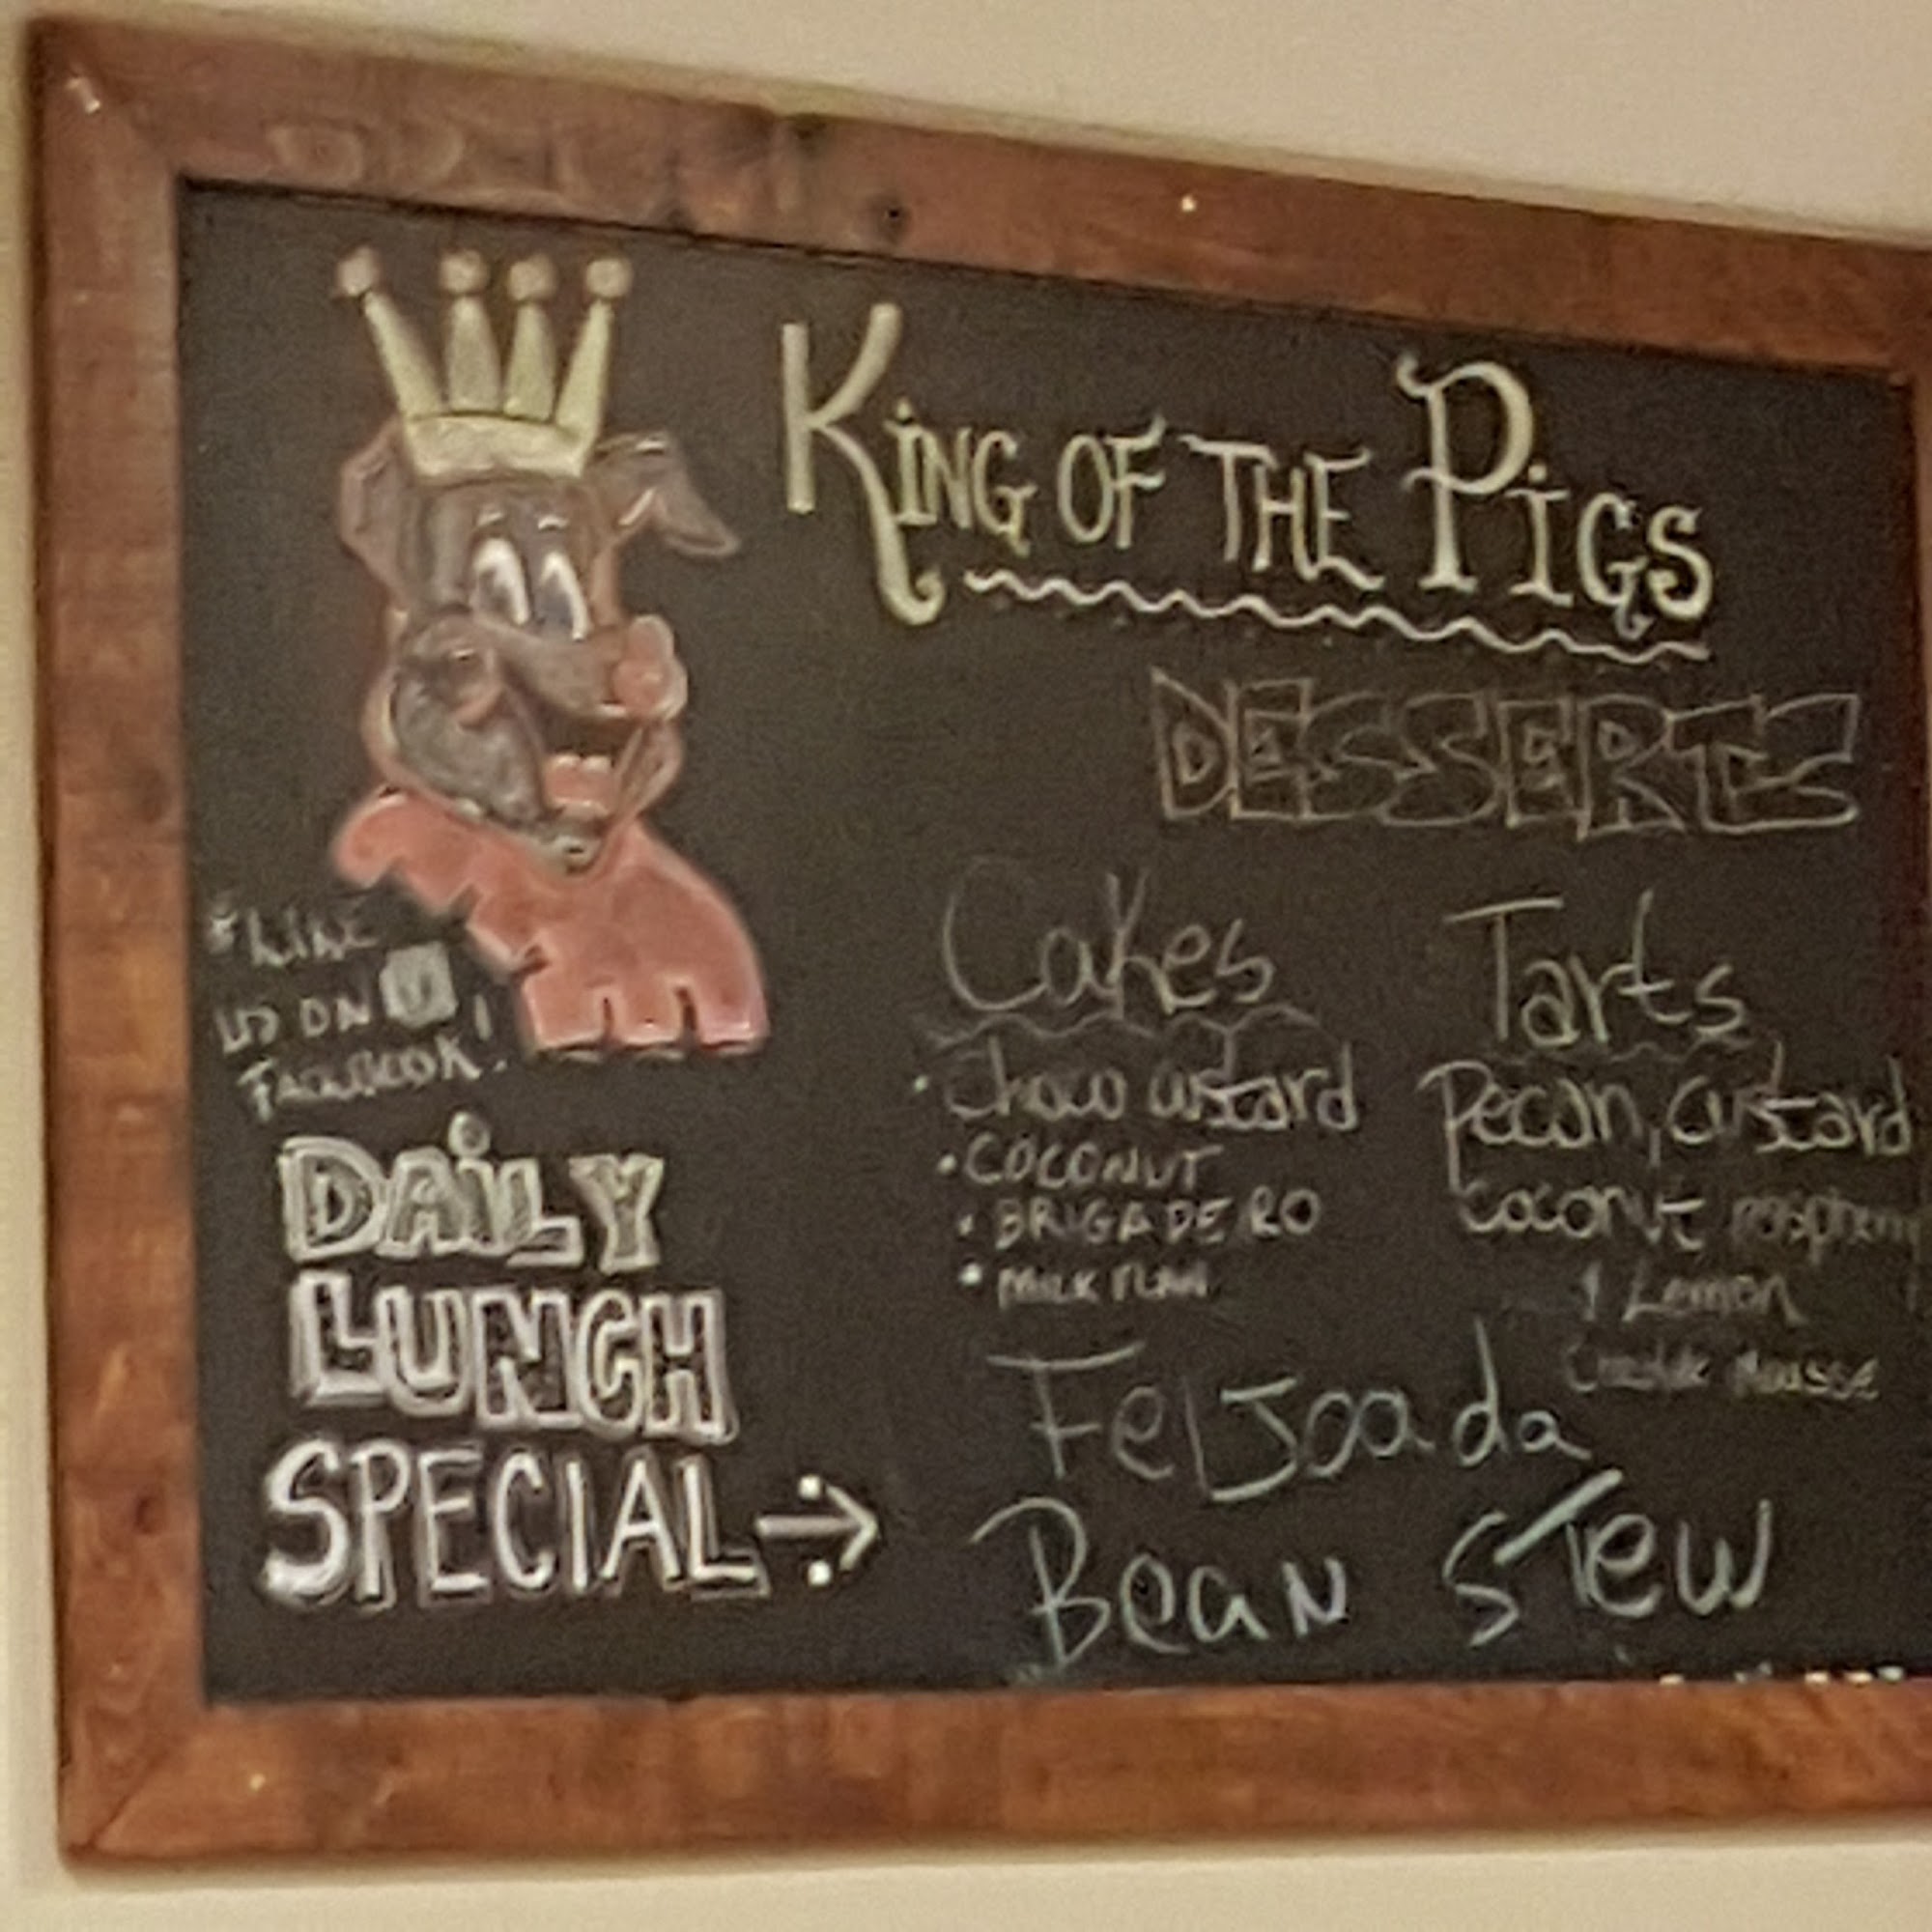 KiNG OF THE PiGS
DESSERTS
Cakes
• Choco custard
• COCONUT
• BRIGADEIRO
• MILK FLAN
Tarts
Pecan, Custard
Coconut raspberry
& Lemon
Mousse
* LIKE
US ON
FACEBOOK!
DAiLY
LUNCH
SPECIAL →
FeIJoada
Bean STew